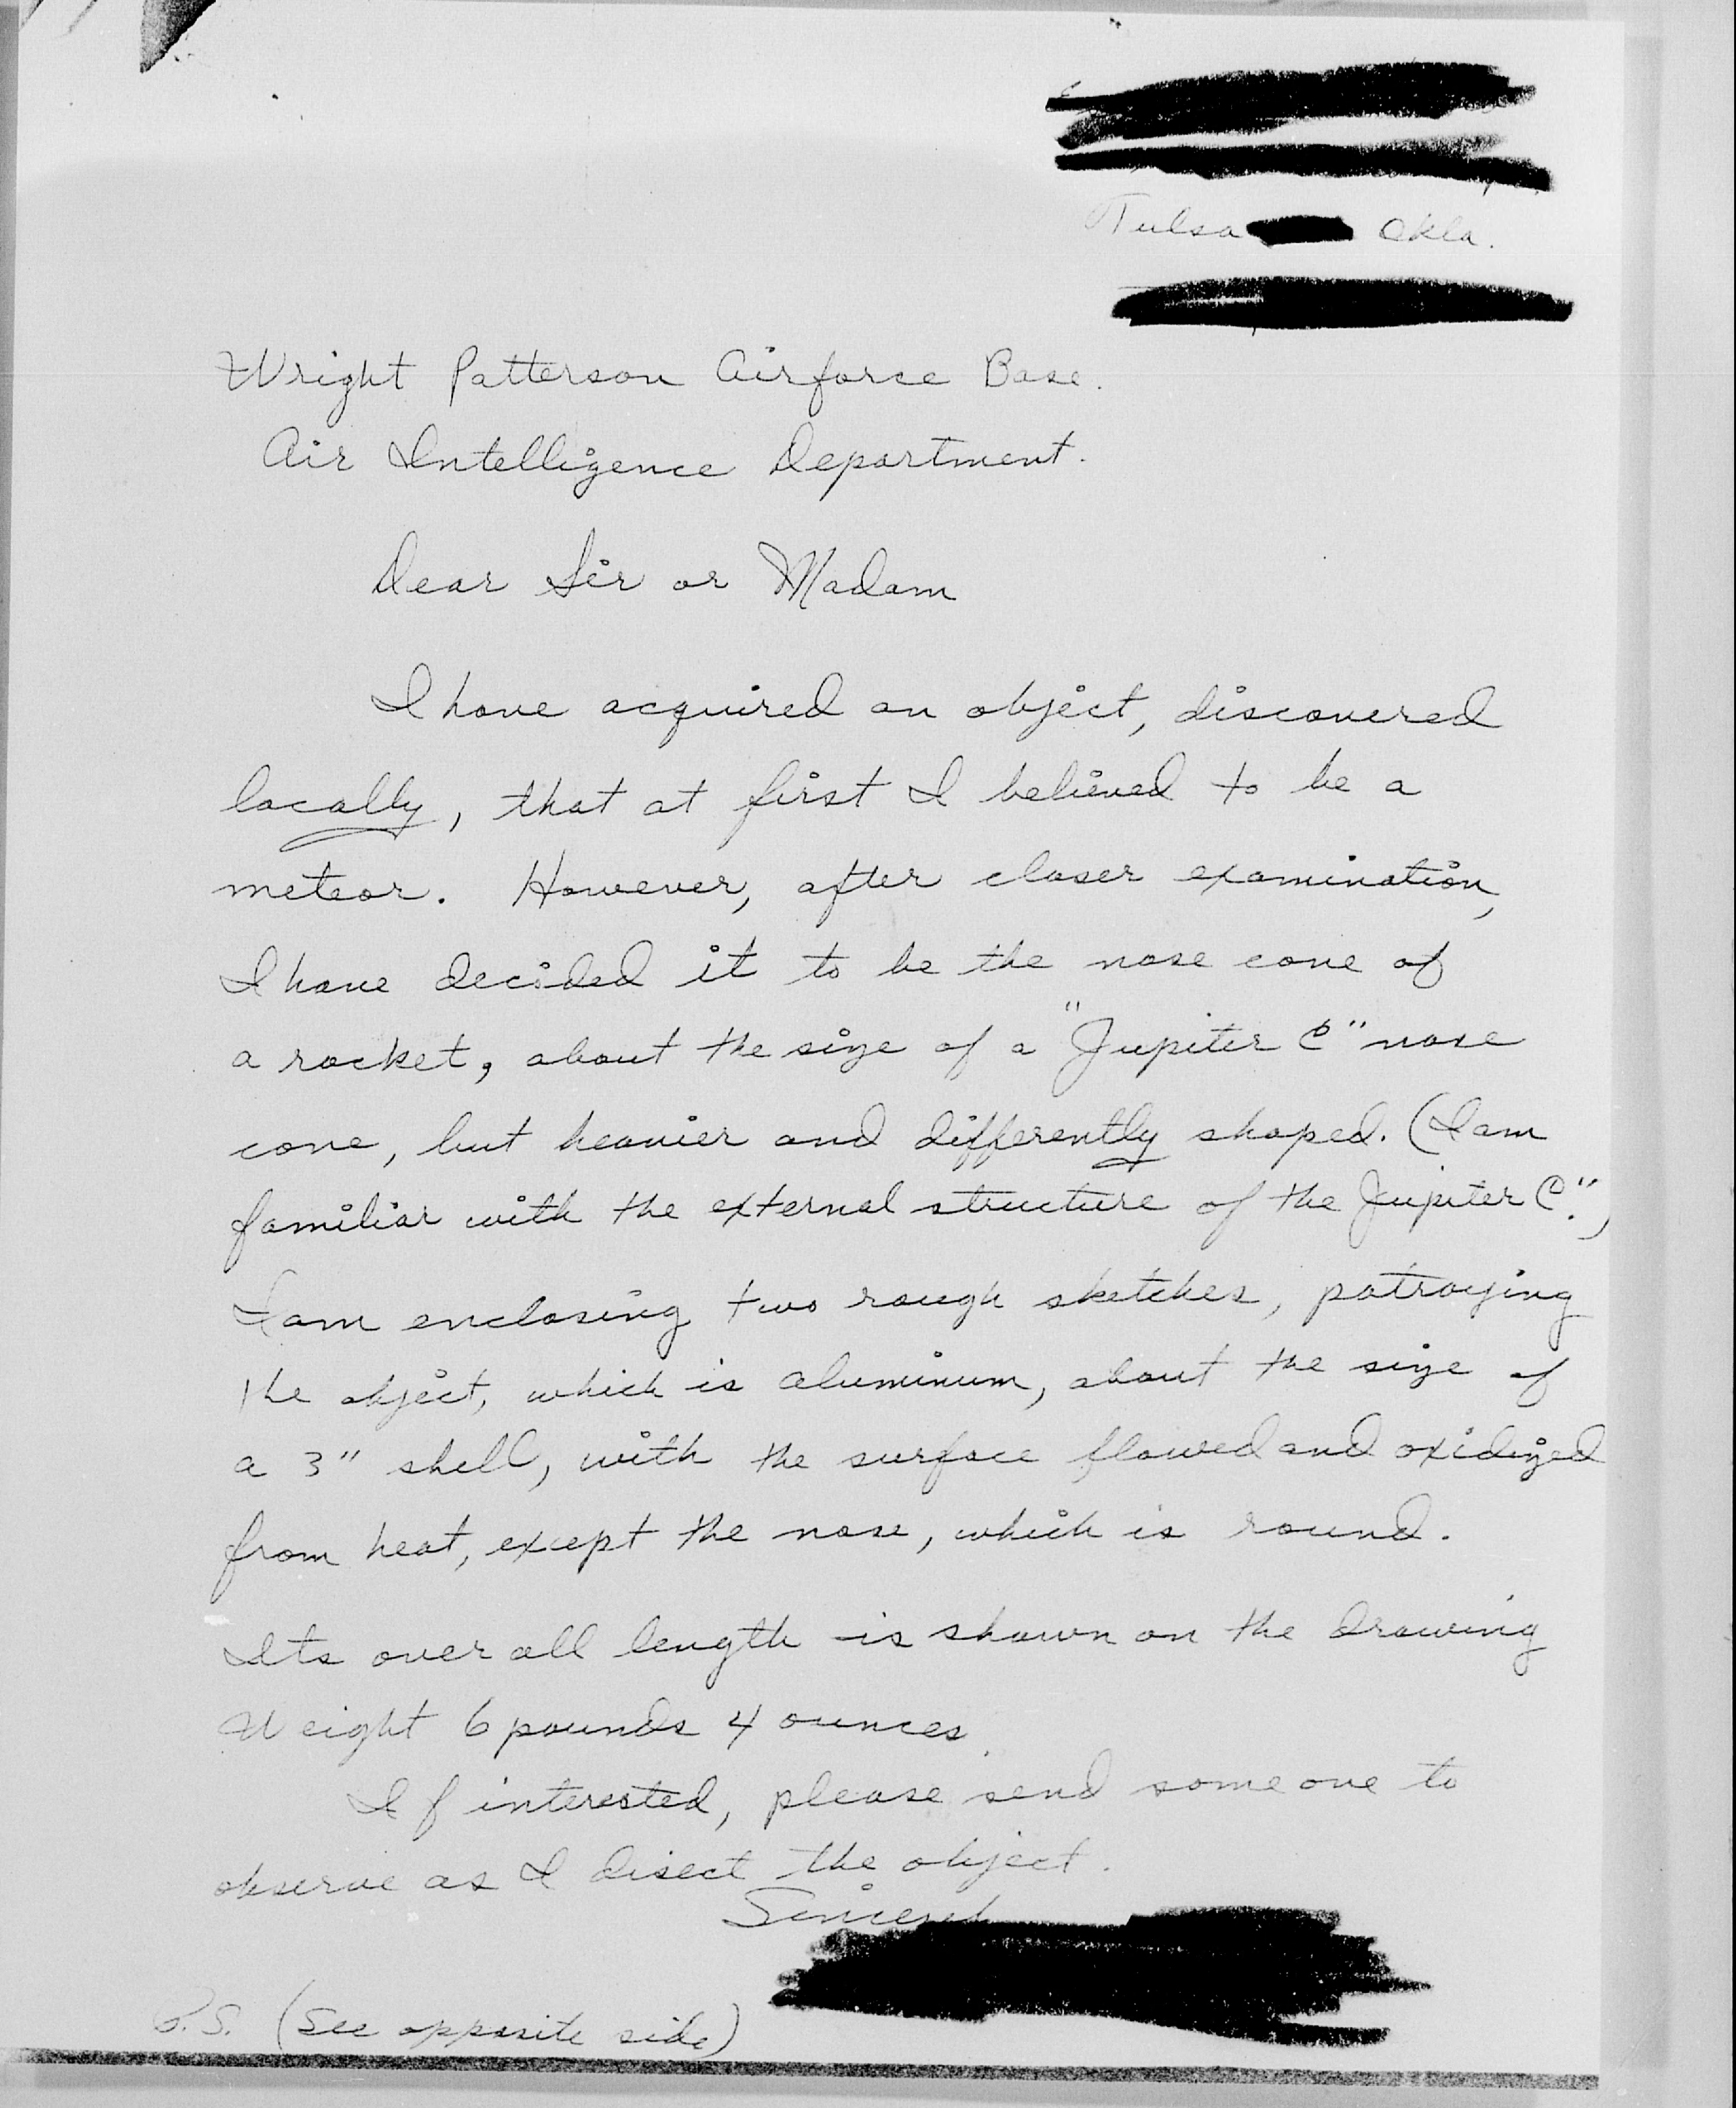 Tulsa Okla.
Wright Patterson Airforce Base.
Air Intelligence Department.
Dear Sir or Madam
I have acquired an object, discovered
locally, that at first I believed to be a
meteor. However, after closer examination,
I have decided it to be the nose cone of
a rocket, about the size of a "Jupiter C" nose
cone, but heavier and differently shaped. (I am
familiar with the external structure of the Jupiter C".)
I am enclosing two rough sketches, patroying
the object, which is aluminum, about the size of
a 3" shell, with the surface flowed and oxidized
from heat, except the nose, which is round.
Its over all length is shown on the drawing
Weight 6 pounds 4 ounces.
If interested, please send someone to
observe as I disect the object.
P.S. (See opposite side)